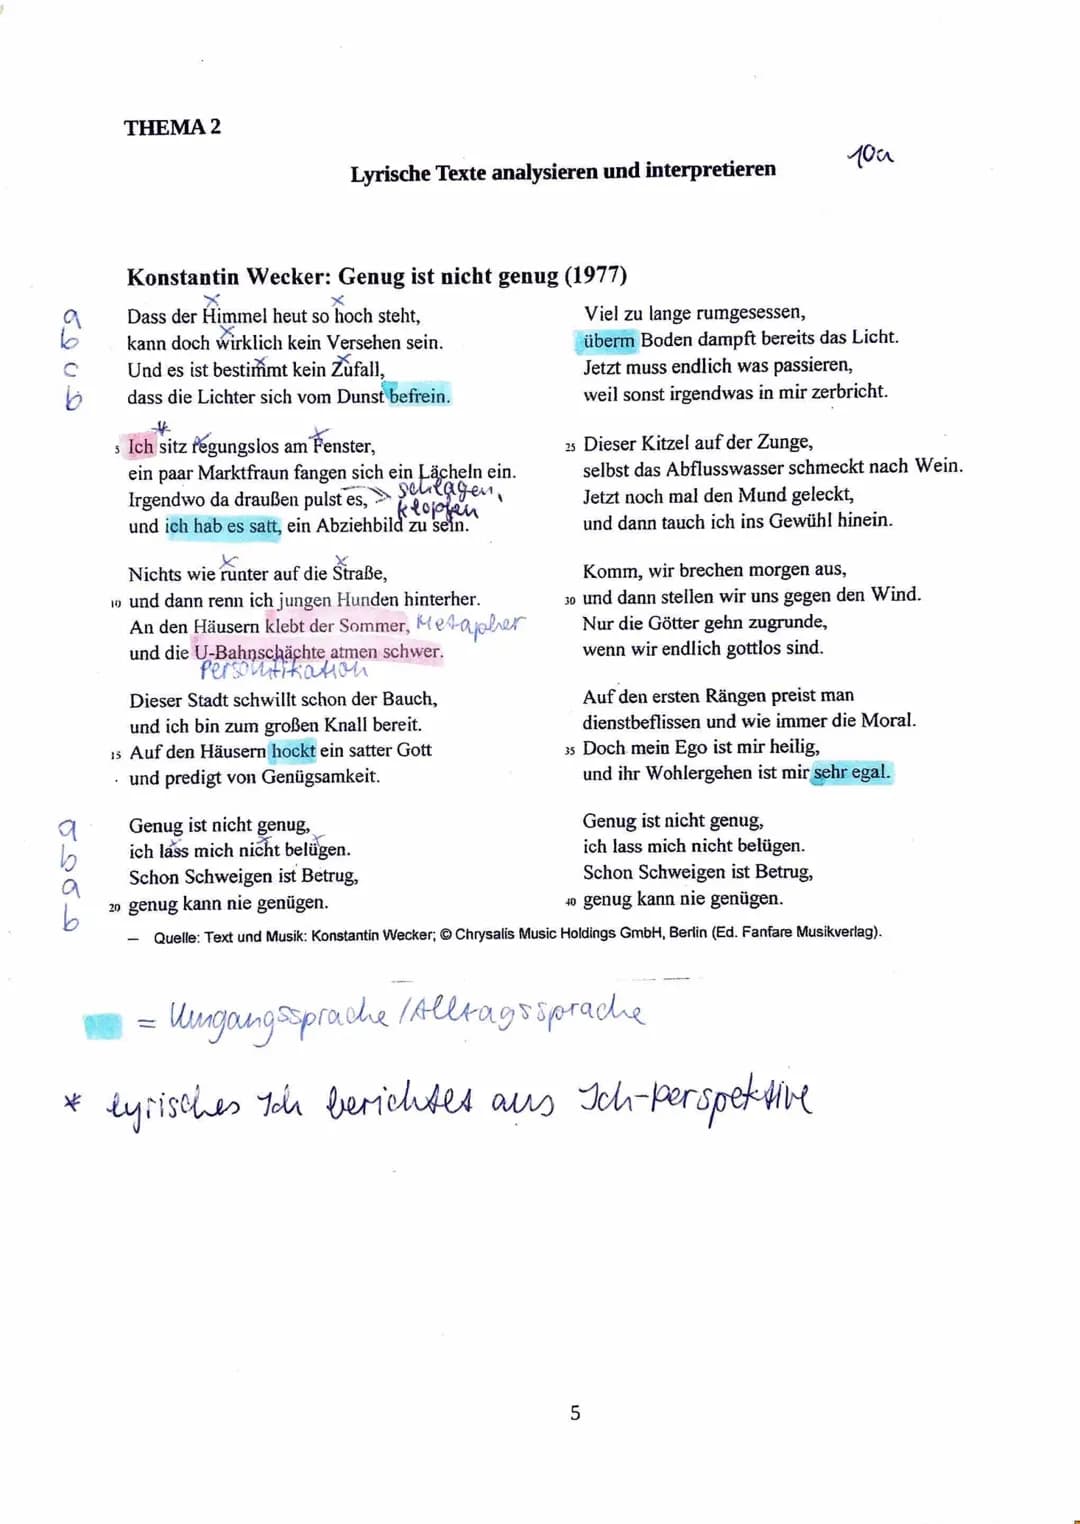 THEMA 2
10a
Lyrische Texte analysieren und interpretieren
Konstantin Wecker: Genug ist nicht genug (1977)
a Dass der Himmel heut so hoch steht,
b kann doch wirklich kein Versehen sein.
c Und es ist bestimmt kein Zufall,
b dass die Lichter sich vom Dunst befrein.
*
5 Ich sitz regungslos am Fenster,
ein paar Marktfraun fangen sich ein Lächeln ein.
Irgendwo da draußen pulst es, schlagen,
klopfen
und ich hab es satt, ein Abziehbild zu sein.
Nichts wie runter auf die Straße,
10 und dann renn ich jungen Hunden hinterher.
An den Häusern klebt der Sommer, Metapher
und die U-Bahnschächte atmen schwer.
Personifikation
Dieser Stadt schwillt schon der Bauch,
und ich bin zum großen Knall bereit.
15 Auf den Häusern hockt ein satter Gott
und predigt von Genügsamkeit.
a Genug ist nicht genug,
b ich lass mich nicht belügen.
a Schon Schweigen ist Betrug,
b 20 genug kann nie genügen.
Viel zu lange rumgesessen,
überm Boden dampft bereits das Licht.
Jetzt muss endlich was passieren,
weil sonst irgendwas in mir zerbricht.
25 Dieser Kitzel auf der Zunge,
selbst das Abflusswasser schmeckt nach Wein.
Jetzt noch mal den Mund geleckt,
und dann tauch ich ins Gewühl hinein.
Komm, wir brechen morgen aus,
30 und dann stellen wir uns gegen den Wind.
Nur die Götter gehn zugrunde,
wenn wir endlich gottlos sind.
Auf den ersten Rängen preist man
dienstbeflissen und wie immer die Moral.
35 Doch mein Ego ist mir heilig,
und ihr Wohlergehen ist mir sehr egal.
Genug ist nicht genug,
ich lass mich nicht belügen.
Schon Schweigen ist Betrug,
40 genug kann nie genügen.
– Quelle: Text und Musik: Konstantin Wecker; © Chrysalis Music Holdings GmbH, Berlin (Ed. Fanfare Musikverlag).
= Umgangssprache /Alltagssprache
* lyrisches Ich berichtet aus Ich-Perspektive
5